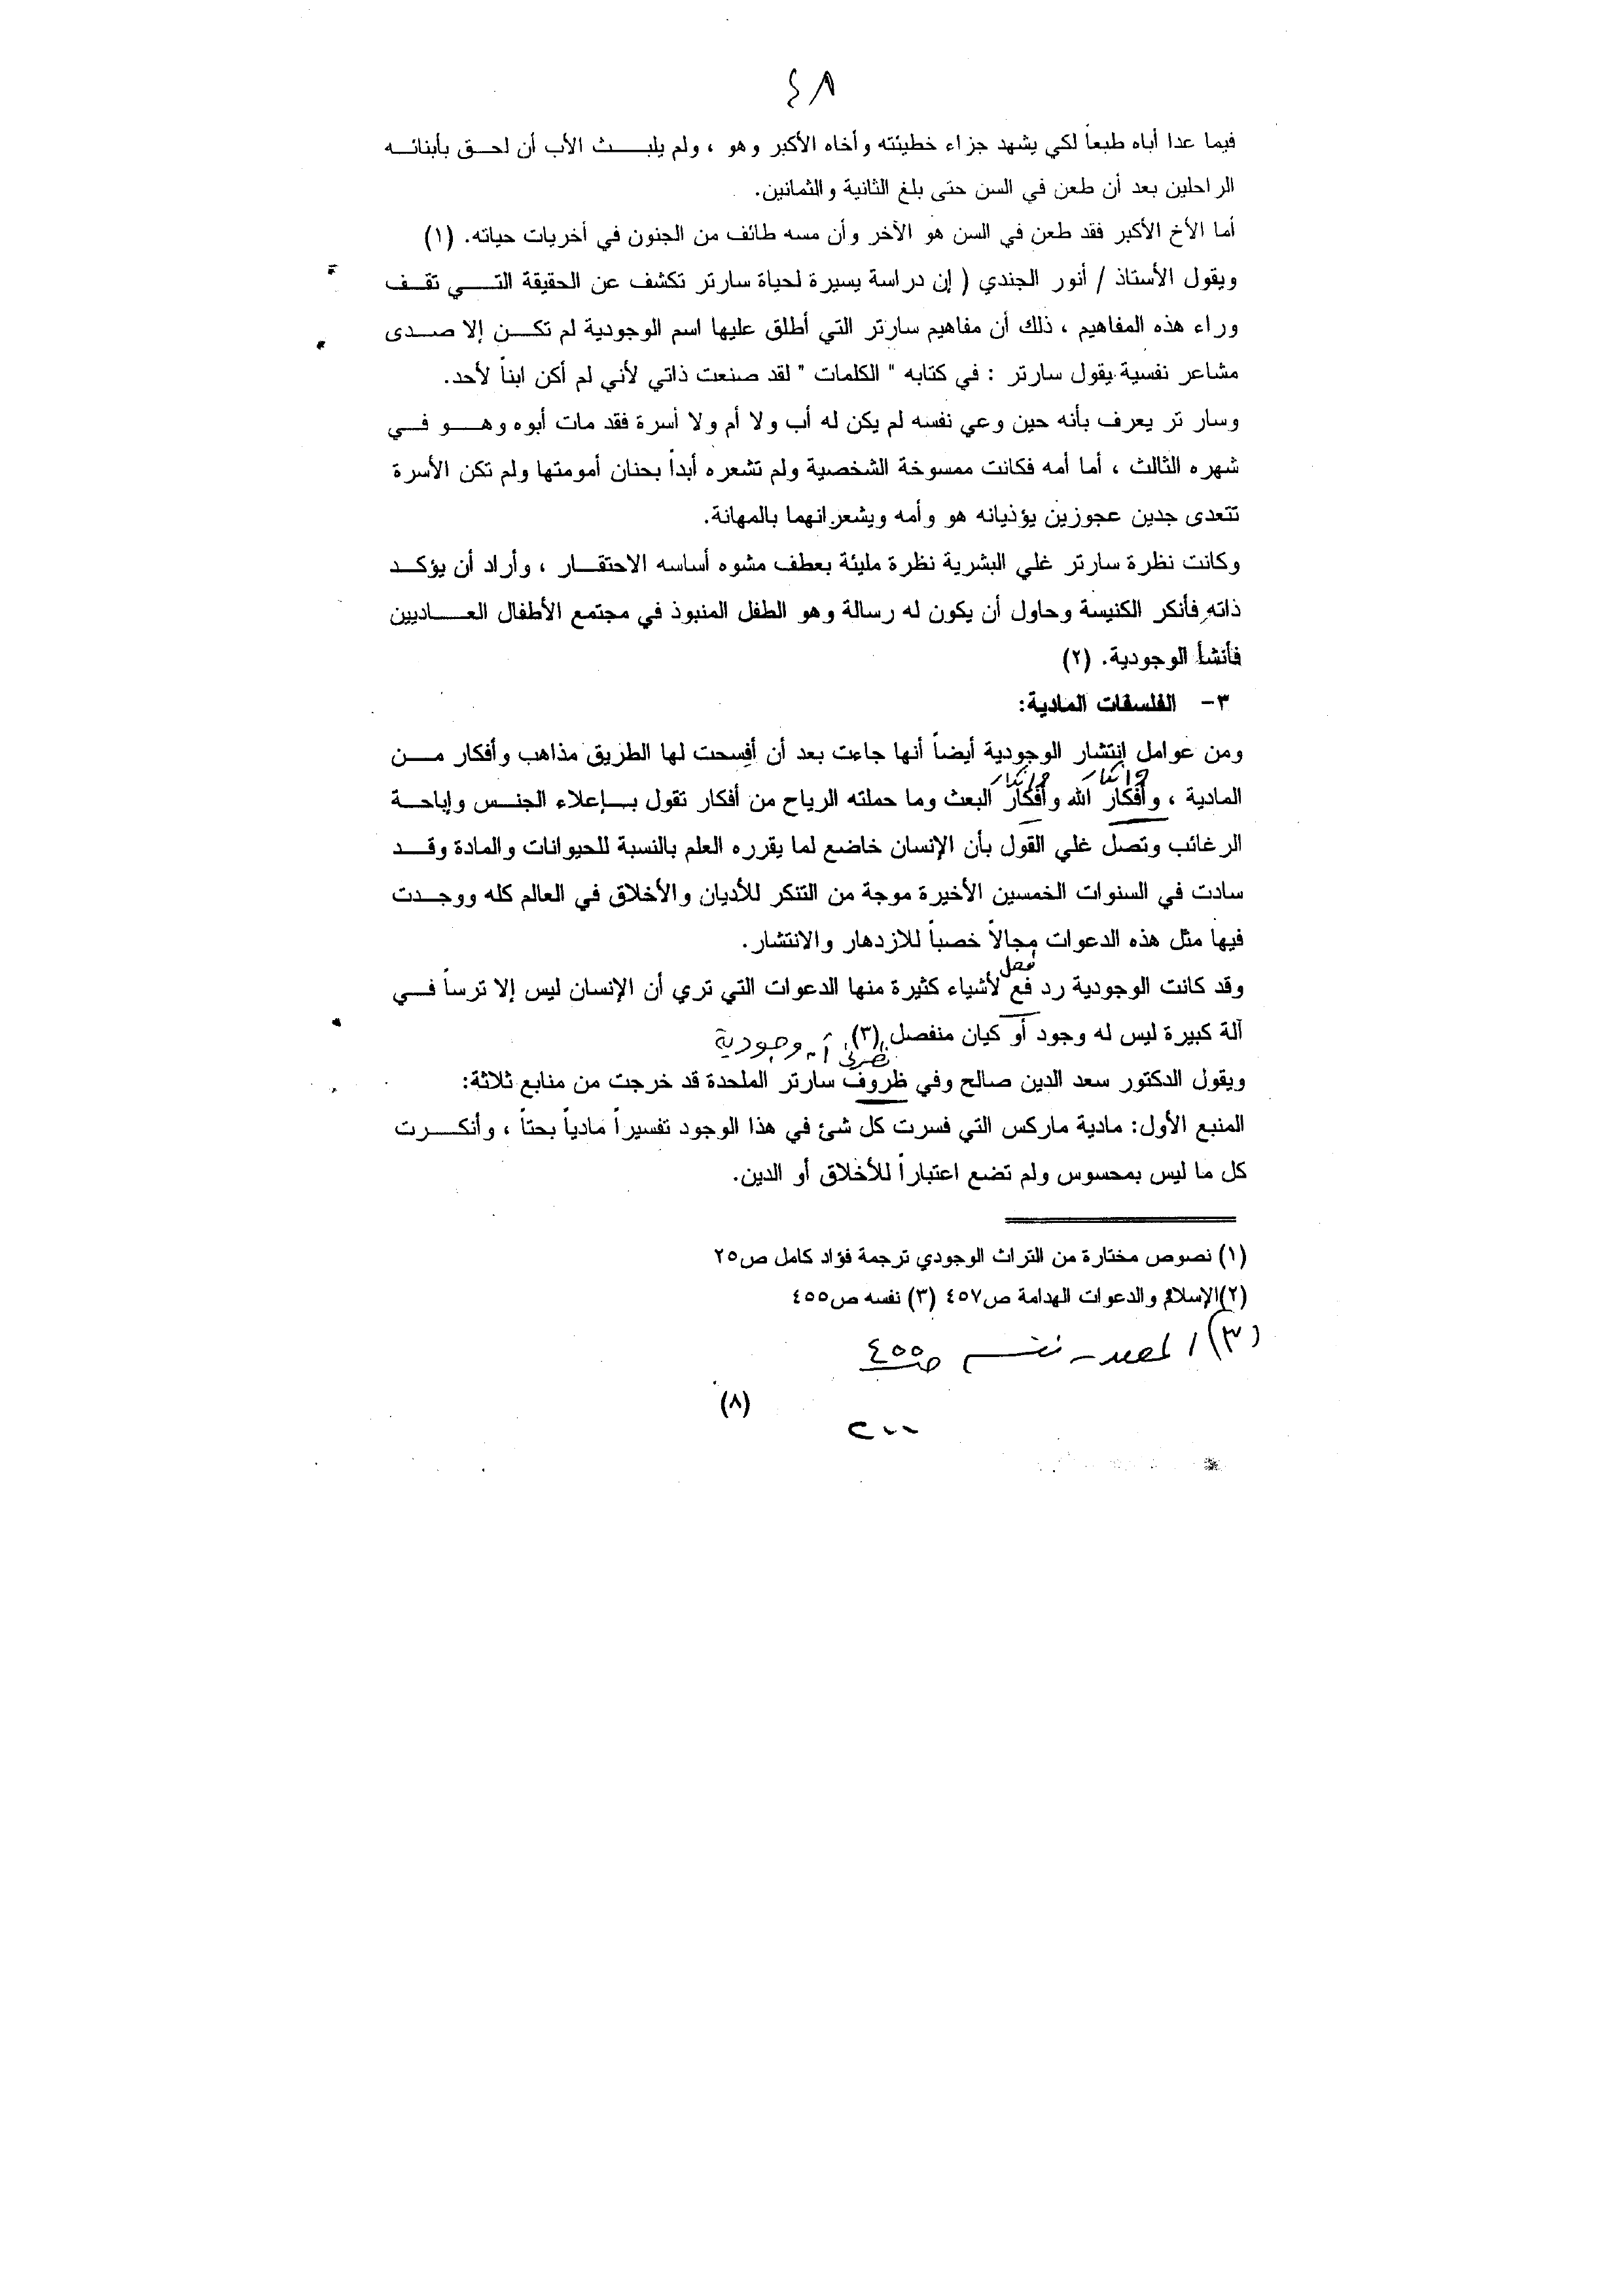 ٤٨
فيما عدا أباه طبعاً لكي يشهد جزاء خطيئته وأخاه الأكبر وهو ، ولم يلبث الأب أن لحق بأبنائه
الراحلين بعد أن طعن في السن حتى بلغ الثانية والثمانين.
أما الأخ الأكبر فقد طعن في السن هو الآخر وأن مسه طائف من الجنون في أخريات حياته. (١)
ويقول الأستاذ / أنور الجندي ( إن دراسة يسيرة لحياة سارتر تكشف عن الحقيقة التي تقف
وراء هذه المفاهيم ، ذلك أن مفاهيم سارتر التي أطلق عليها اسم الوجودية لم تكن إلا صدى
مشاعر نفسية يقول سارتر : في كتابه " الكلمات " لقد صنعت ذاتي لأني لم أكن ابناً لأحد.
وسار تر يعرف بأنه حين وعي نفسه لم يكن له أب ولا أم ولا أسرة فقد مات أبوه وهو في
شهره الثالث ، أما أمه فكانت ممسوخة الشخصية ولم تشعره أبداً بحنان أمومتها ولم تكن الأسرة
تتعدى جدين عجوزين يؤذيانه هو وأمه ويشعرانهما بالمهانة.
وكانت نظرة سارتر غلي البشرية نظرة مليئة بعطف مشوه أساسه الاحتقار ، وأراد أن يؤكد
ذاته فأنكر الكنيسة وحاول أن يكون له رسالة وهو الطفل المنبوذ في مجتمع الأطفال العاديين
فأنشأ الوجودية. (٢)
٣- الفلسفات المادية:
ومن عوامل إنتشار الوجودية أيضاً أنها جاءت بعد أن أفسحت لها الطريق مذاهب وأفكار من
وإنكار وإنكار
المادية ، وأفكار الله وأفكار البعث وما حملته الرياح من أفكار تقول بإعلاء الجنس وإباحة
الرغائب وتصل غلي القول بأن الإنسان خاضع لما يقرره العلم بالنسبة للحيوانات والمادة وقد
سادت في السنوات الخمسين الأخيرة موجة من التنكر للأديان والأخلاق في العالم كله ووجدت
فيها مثل هذه الدعوات مجالاً خصباً للازدهار والانتشار.
فعل
وقد كانت الوجودية رد فع لأشياء كثيرة منها الدعوات التي تري أن الإنسان ليس إلا ترساً في
آلة كبيرة ليس له وجود أو كيان منفصل (٣)
نظري أن وجودية
ويقول الدكتور سعد الدين صالح وفي ظروف سارتر الملحدة قد خرجت من منابع ثلاثة:
المنبع الأول: مادية ماركس التي فسرت كل شئ في هذا الوجود تفسيراً مادياً بحتاً ، وأنكرت
كل ما ليس بمحسوس ولم تضع اعتباراً للأخلاق أو الدين.
(١) نصوص مختارة من التراث الوجودي ترجمة فؤاد كامل ص٢٥
(٢)الإسلام والدعوات الهدامة ص٤٥٧ (٣) نفسه ص٤٥٥
(٣) المصدر نفسه ص٤٥٥
(٨)